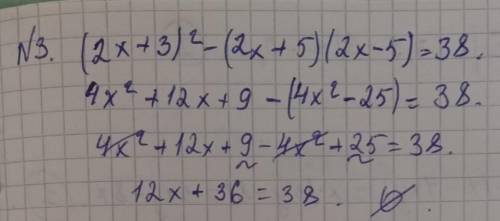 №3. (2x+3)²-(2x+5)(2x-5)=38.
4x²+12x+9-(4x²-25)=38.
4x²+12x+9-4x²+25=38.
12x+36=38. ∅.